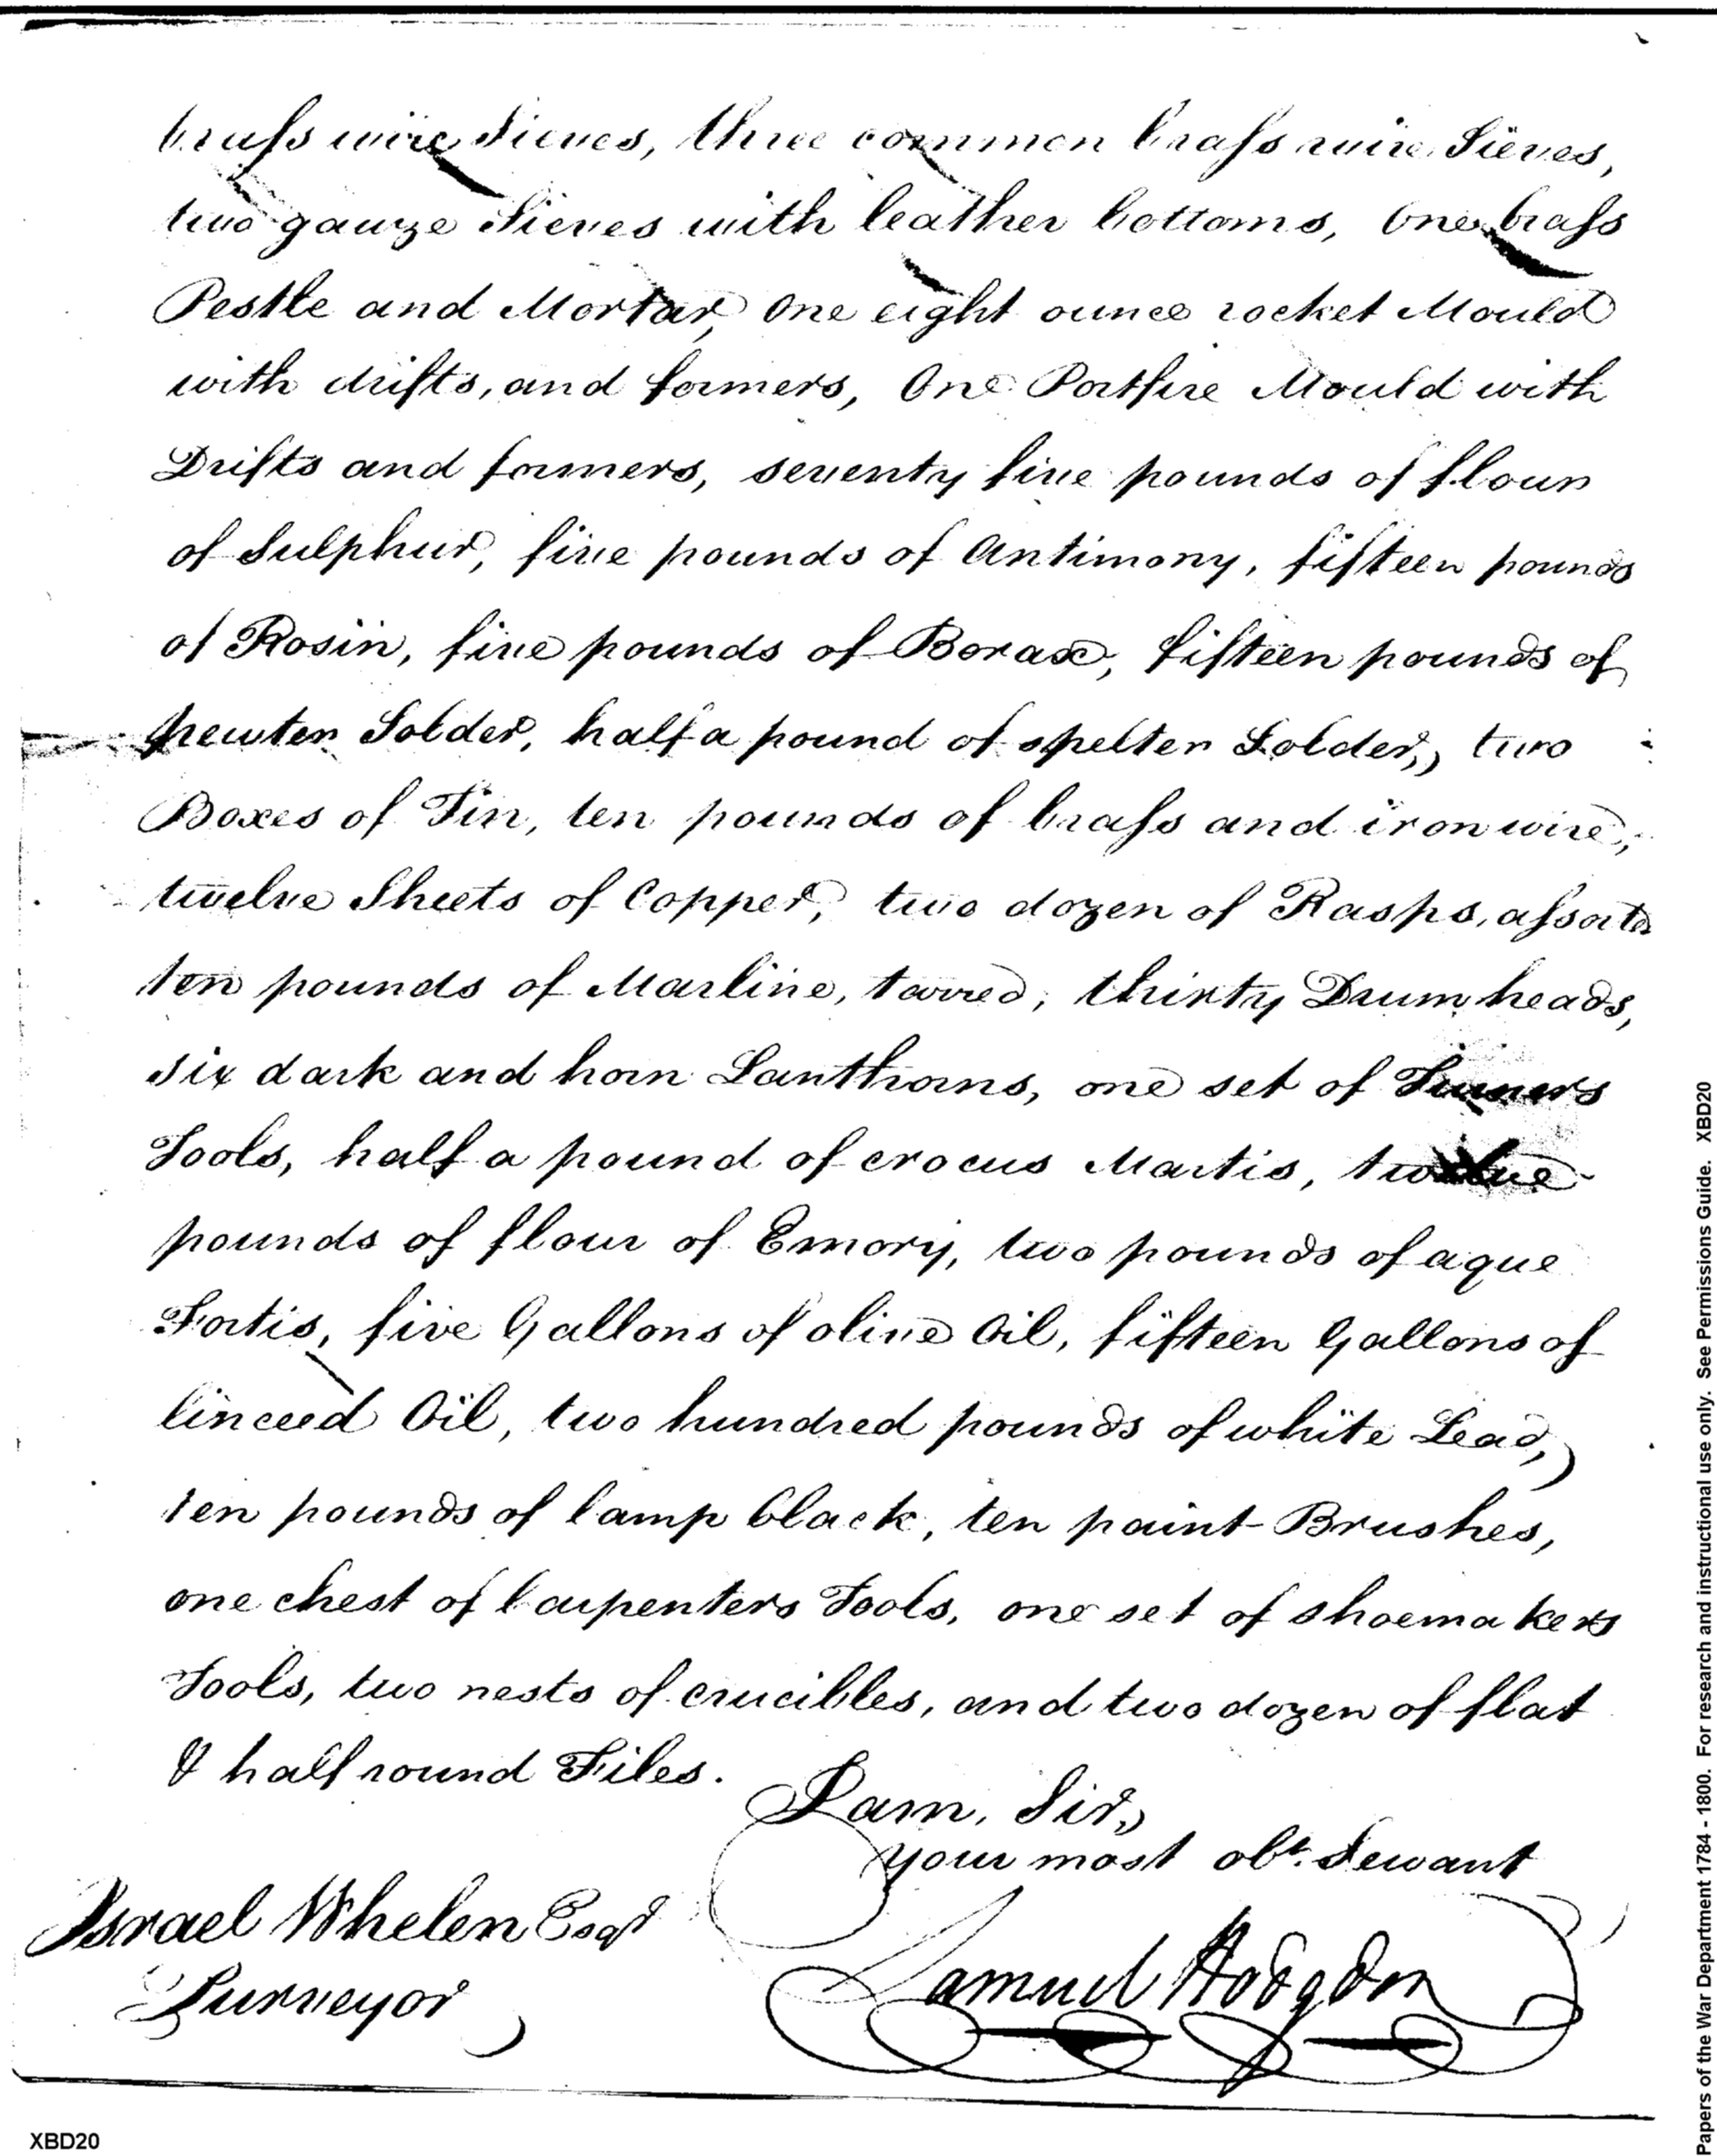 brass wire Sieves, three common brass wire Sieves,
two gauze Sieves with leather bottoms, One brass
Pestle and Mortar, One eight ounce rocket Mould
with drifts, and formers, One Portfire Mould with
Drifts and formers, seventy five pounds of flour
of Sulphur, five pounds of Antimony, fifteen pounds
of Rosin, five pounds of Borax, fifteen pounds of
pewter Solder, half a pound of spelter Solder, two
Boxes of Tin, ten pounds of brass and iron wire,
twelve Sheets of Copper, two dozen of Rasps, assorted
ten pounds of Marline, tarred, thirty Drum heads,
six dark and horn Lanthorns, one set of Tinners
Tools, half a pound of crocus Martis, twelve
pounds of flour of Emory, two pounds of aque
Fortis, five Gallons of olive Oil, fifteen Gallons of
linceed Oil, two hundred pounds of white Lead,
ten pounds of lamp black, ten paint Brushes,
one chest of Carpenters Tools, one set of shoemakers
Tools, two nests of crucibles, and two dozen of flat
& half round Files.
I am, Sir,
your most obt. Servant
Samuel Hodgdon
Israel Whelen Esqr
Purveyor
XBD20
Papers of the War Department 1784 - 1800. For research and instructional use only. See Permissions Guide. XBD20